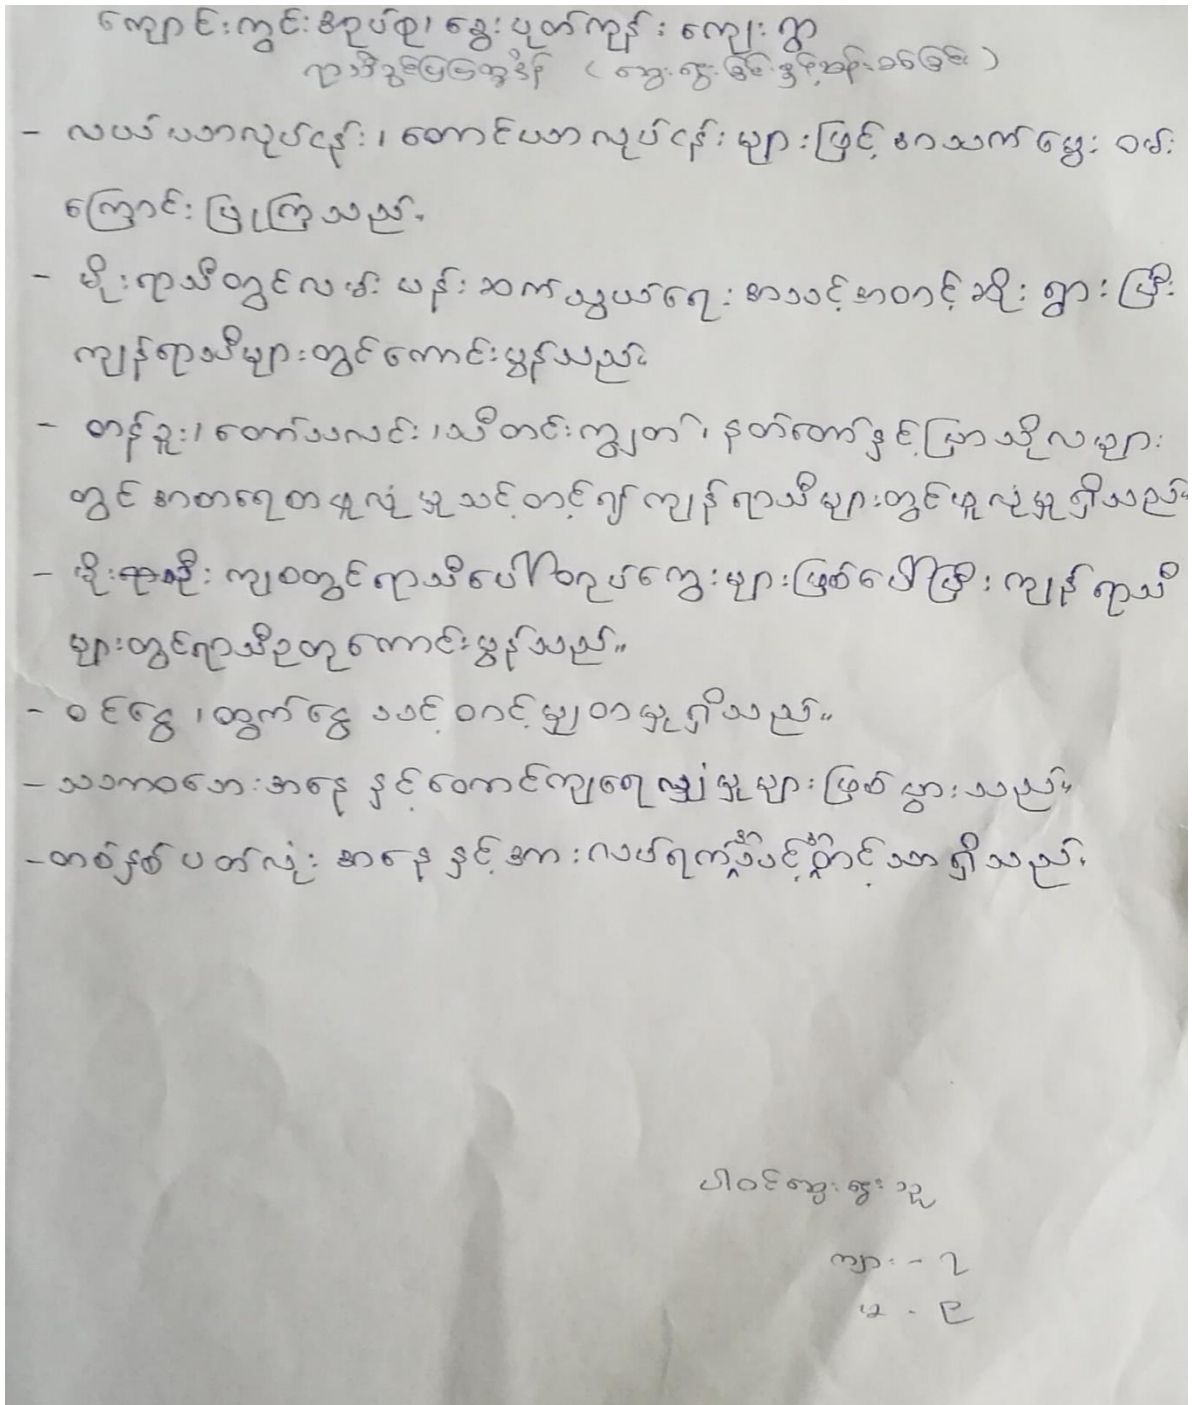 ကျောင်းကွင်းအုပ်စု၊ နွေးပုတ်ကုန်းကျေးရွာ
ရာသီခွင်ပြပြက္ခဒိန် (ဆွေးနွေးခြင်းနှင့်ဆန်းစစ်ခြင်း)
- လယ်ယာလုပ်ငန်း၊ တောင်ယာလုပ်ငန်းများဖြင့် အသက်မွေးဝမ်း
ကြောင်းပြုကြသည်။
- မိုးရာသီတွင်လမ်းပန်းဆက်သွယ်ရေးအသင့်အတင့်ဆိုးရွားပြီး
ကျန်ရာသီများတွင်ကောင်းမွန်သည်။
- တန်ခူး၊ တော်သလင်း၊ သီတင်းကျွတ်၊ နတ်တော်နှင့်ပြာသိုလများ
တွင် စားရေတာဖူလုံမှုသင့်တင့်၍ ကျန်ရာသီများတွင်ဖူလုံမှုရှိသည်။
- မိုးဦးကျစတွင်ရာသီပေါ်တုပ်ကွေးများဖြစ်ပေါ်ပြီး ကျန်ရာသီ
များတွင်ရာသီဥတုကောင်းမွန်သည်။
- ဝင်ငွေ၊ ထွက်ငွေ သင့်တင့်မျှတမှုရှိသည်။
- သဘာဝဘေးအနေနှင့်တောင်ကျရေလျှံမှုများဖြစ်ပွားသည်။
- တစ်နှစ်ပတ်လုံးအနေနှင့်အားလပ်ရက်သင့်တင့်သာရှိသည်။
ပါဝင်ဆွေးနွေးသူ
ကျား - ၇
မ - ၉